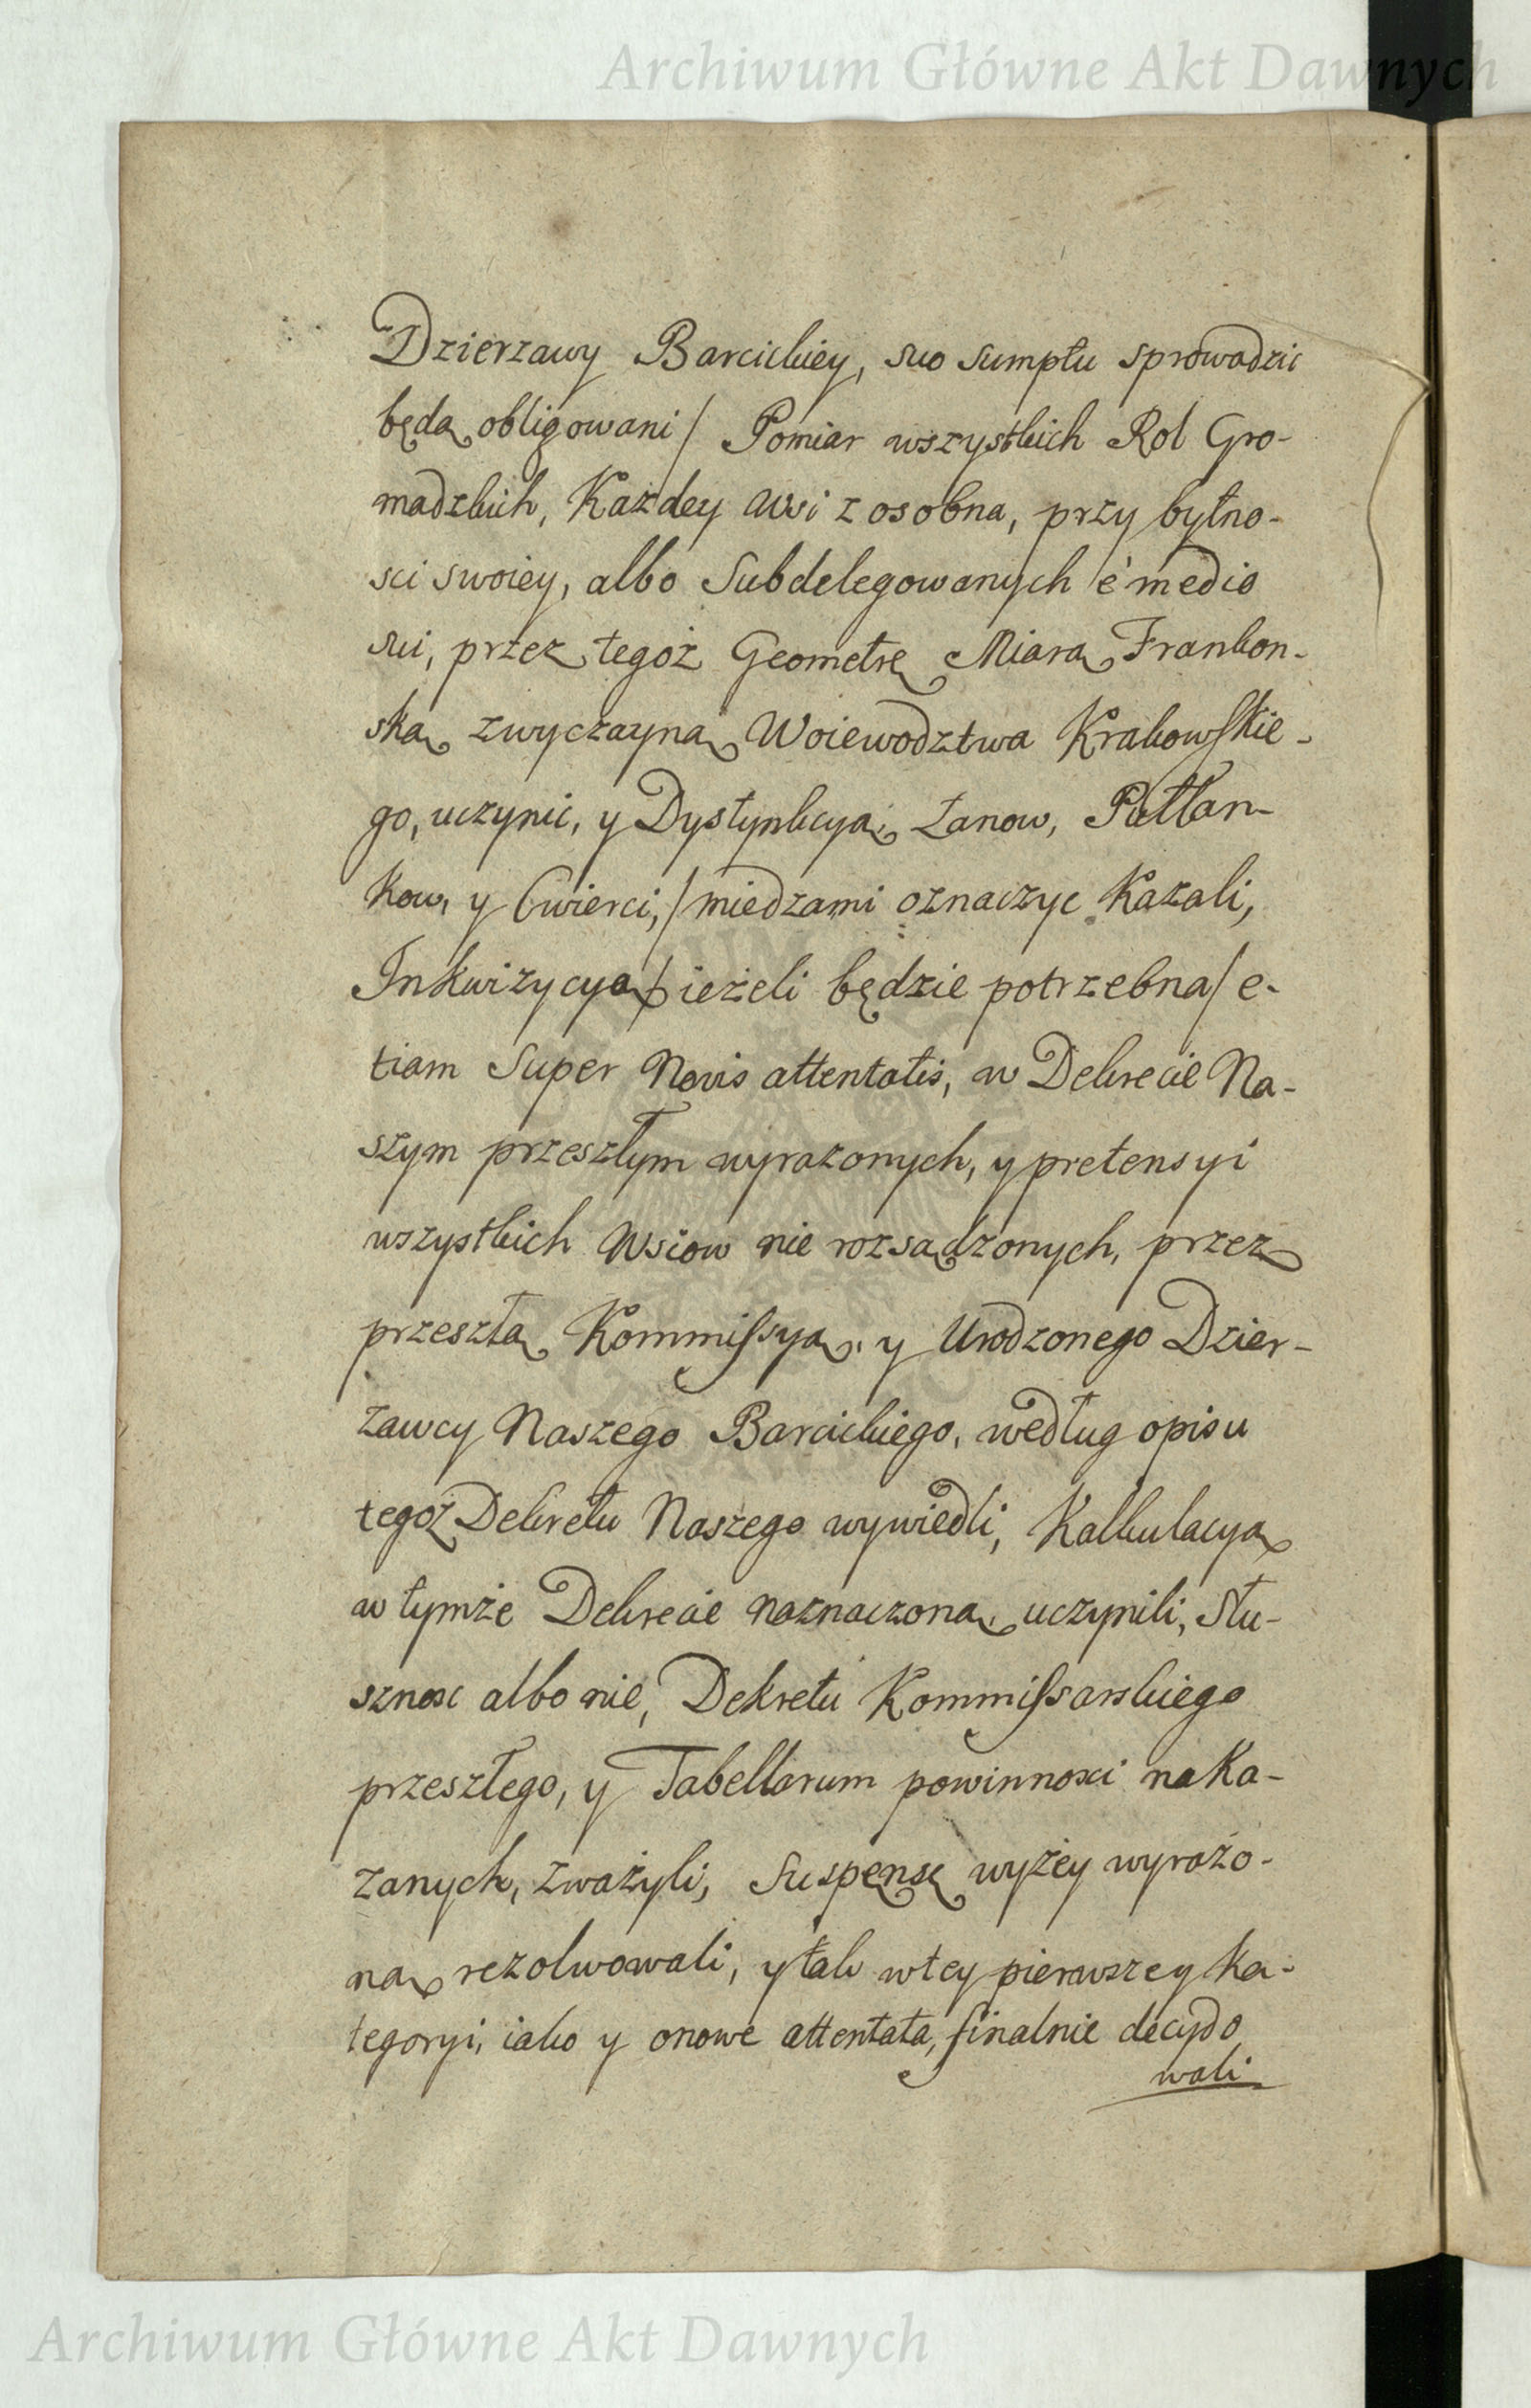 Archiwum Główne Akt Dawnych
Dzierzawy Barcickiey, suo sumptu sprowadzic
będą obligowani / Pomiar wszystkich Rol Gro-
madzkich, Kazdey Wsi z osobna, przy bytno-
sci swoiey, albo Subdelegowanych è medio
sui, przez tegoż Geometrę Miarą Frankon-
ską zwyczayną Woiewodztwa Krakowskie-
go, uczynic, y Dystynkcyą Łanow, Pułłan-
kow, y Cwierci, / miedzami oznaczyc Kazali,
Inkwizycyą / ieżeli będzie potrzebna / e-
tiam Super Novis attentatis, w Dekrecie Na-
szym przeszłym wyrazonych, y pretensyi
wszystkich Wsiow nie rozsądzonych, przez
przeszłą Kommissyą, y Urodzonego Dzier-
zawcy Naszego Barcickiego, według opisu
tegoż Dekretu Naszego wywiedli, Kalkulacyą
w tymże Dekrecie naznaczoną uczynili, Słu-
sznosc albo nie, Dekretu Kommissarskiego
przeszłego, y Tabellarum powinnosci naka-
zanych, zważyli, Suspensę wyżey wyrażo-
ną rezolwowali, y tak w tey pierwszey Ka-
tegoryi, iako y onowe attentata, finalnie decydo
wali
Archiwum Główne Akt Dawnych